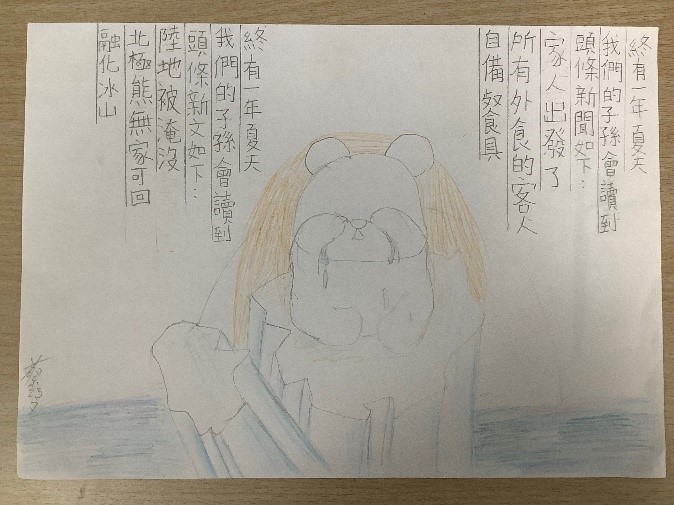 終有一年夏天
我們的子孫會讀到
頭條新聞如下：
家人出發了
所有外食的客人
自備餐食具
終有一年夏天
我們的子孫會讀到
頭條新文如下：
陸地被淹沒
北極熊無家可回
融化冰山